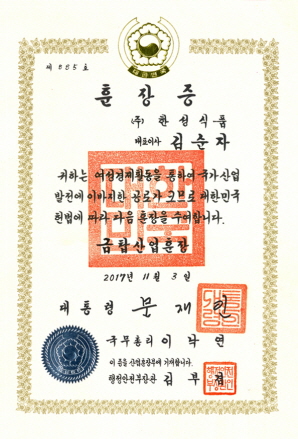 대한민국
제 885 호
훈장증
(주) 한성식품
대표이사 김순자
귀하는 여성경제활동을 통하여 국가산업
발전에 이바지한 공로가 크므로 대한민국
헌법에 따라 다음 훈장을 수여합니다.
금탑산업훈장
2017년 11월 3일
대통령 문재인
국무총리 이낙연
이 증을 산업훈장부에 기재합니다.
행정안전부장관 김부겸